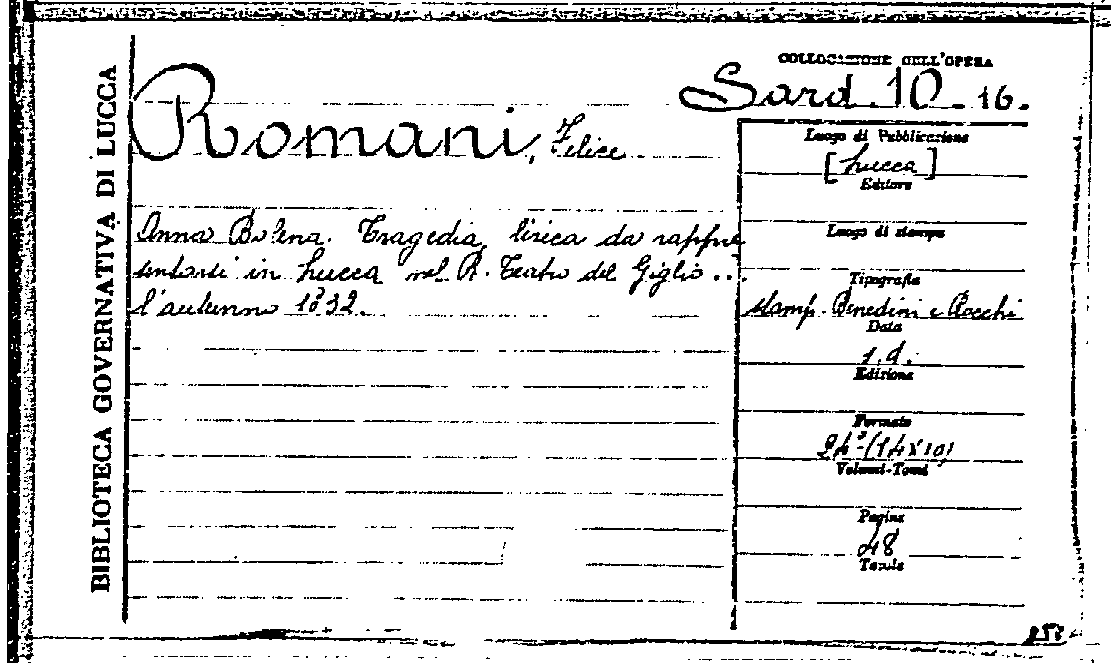 BIBLIOTECA GOVERNATIVA DI LUCCA
COLLOCAZIONE DELL'OPERA
Sard. 10 - 16.
Romani, Felice
Anna Bolena. Tragedia lirica da rappre
sentarsi in Lucca nel R. Teatro del Giglio ...
l'autunno 1832.
Luogo di Pubblicazione
[Lucca]
Editore
Luogo di stampa
Tipografia
stamp. Benedini e Rocchi
Data
s.d.
Edizione
Formato
24° (14x10)
Volumi-Tomi
Pagine
48
Tavole